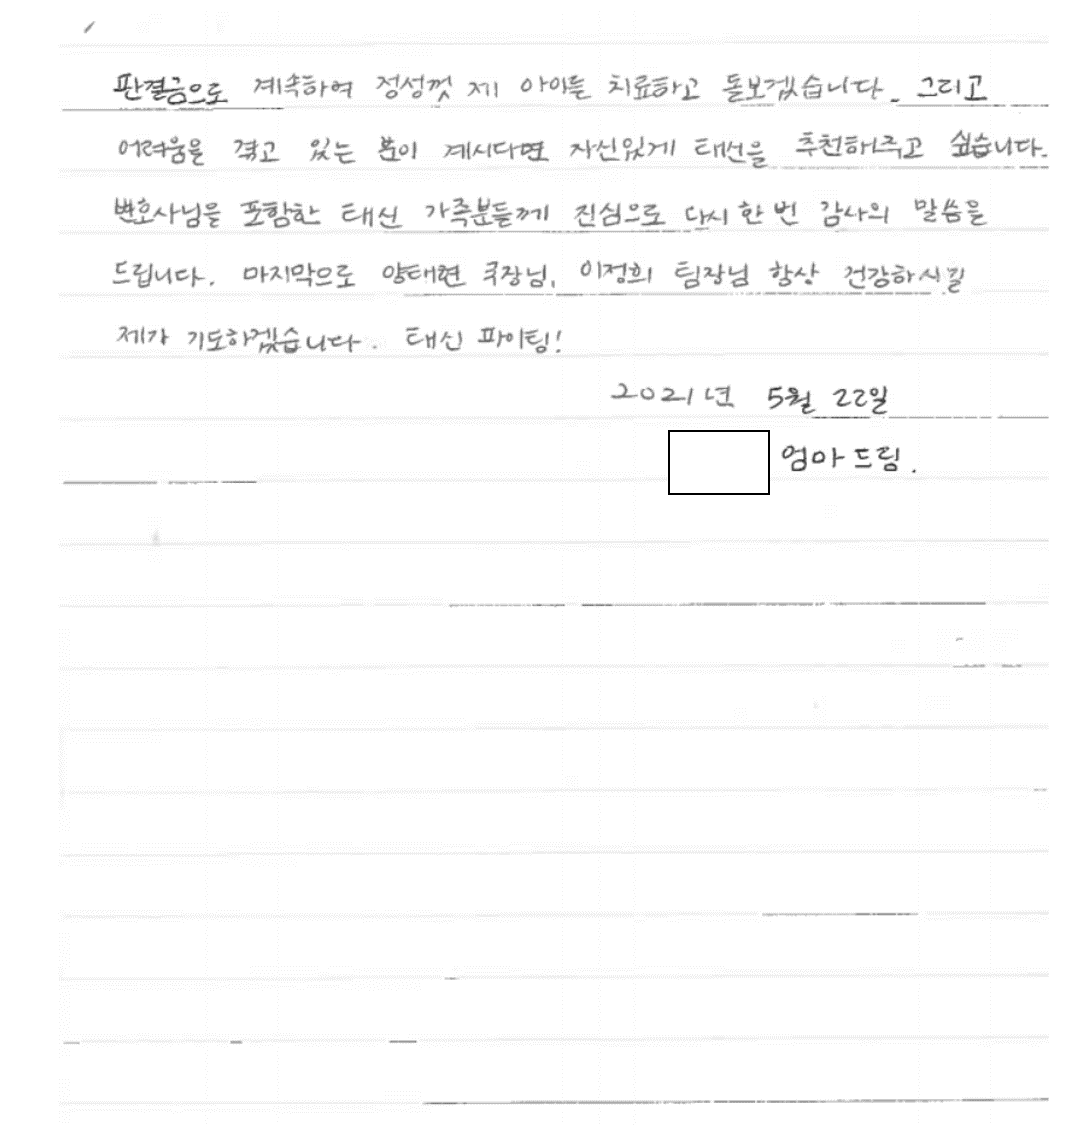 판결금으로 계속하여 정성껏 제 아이를 치료하고 돌보겠습니다. 그리고
어려움을 겪고 있는 분이 계시다면 자신있게 태신을 추천해주고 싶습니다.
변호사님을 포함한 태신 가족분들께 진심으로 다시 한 번 감사의 말씀을
드립니다. 마지막으로 양태현 국장님, 이정희 팀장님 항상 건강하시길
제가 기도하겠습니다. 태신 파이팅!
2021년 5월 22일
엄마 드림.